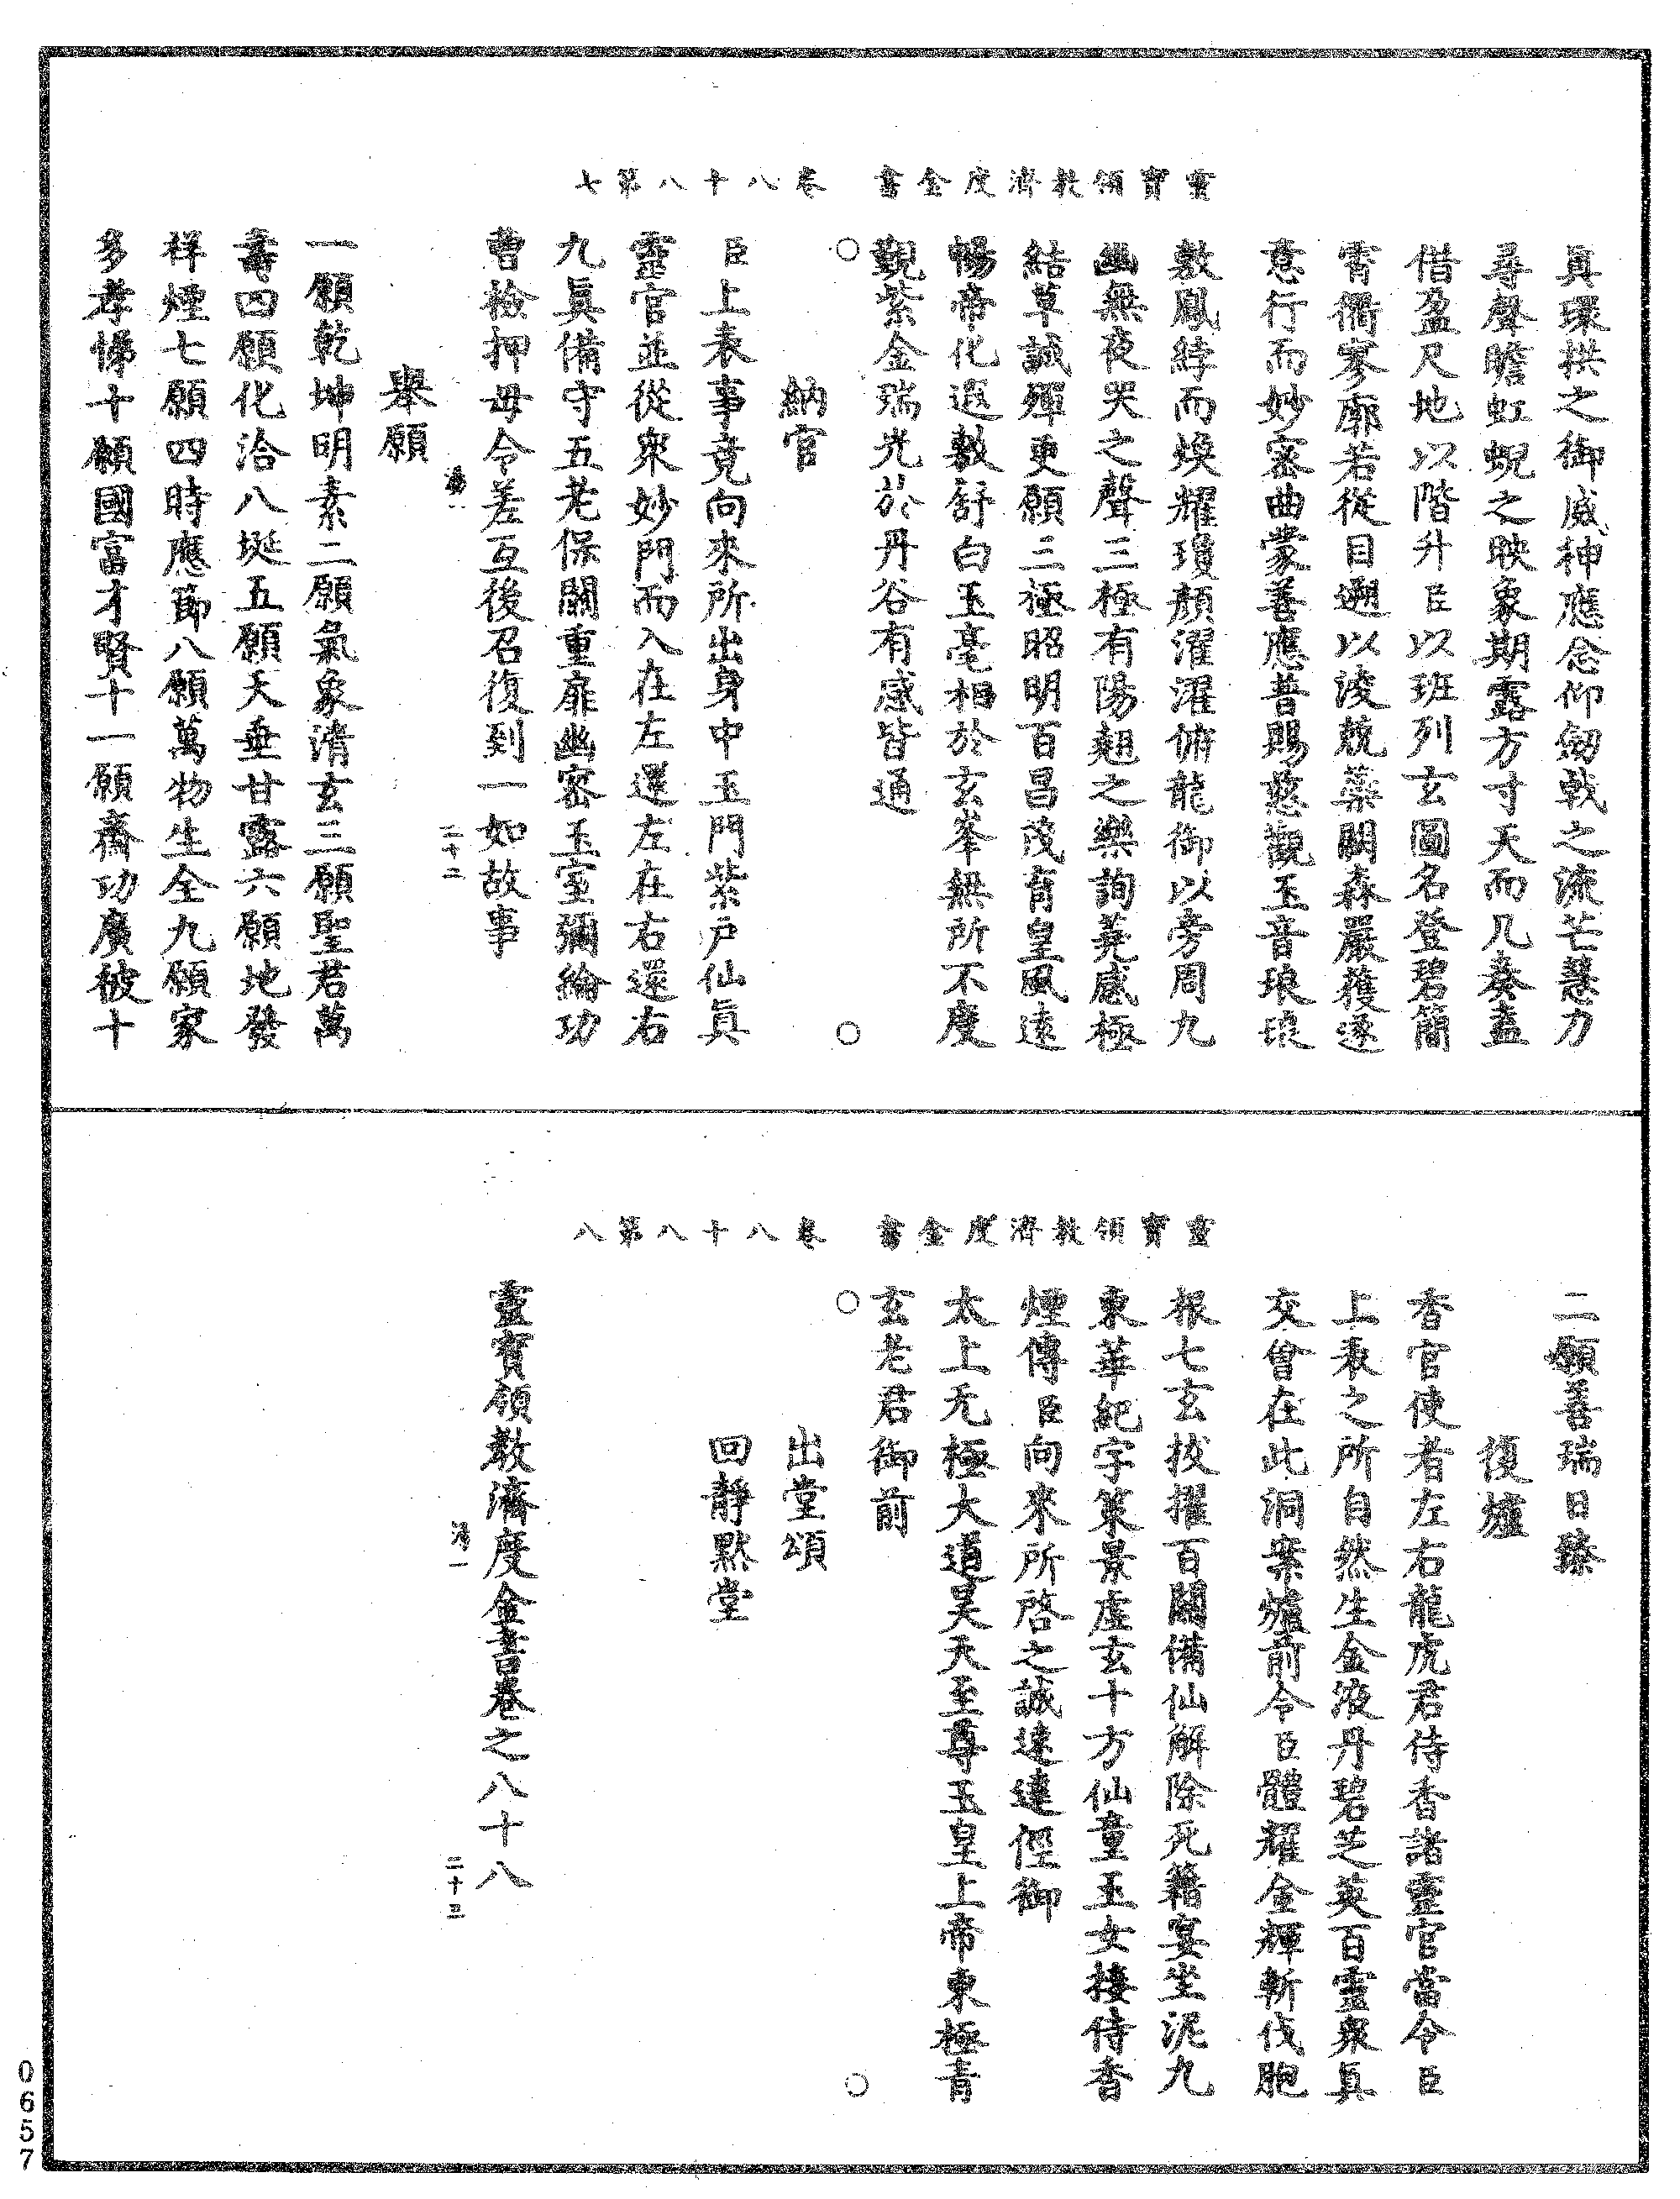 靈寶領教濟度金書　卷八十八第七
眞環拱之御威神應念仰劒戟之流芒慧力
尋聲瞻虹蜺之映象期露方寸天而几奏蓋
借盈尺地以階升臣以班列玄圖名登碧簡
霄衢寥廓若從目遡以淩兢蘂闕森嚴獲遂
意行而妙密曲蒙善應普賜慈觀玉音琅琅
敷鳳綍而煥耀瓊顏濯濯俯龍御以旁周九
幽無夜哭之聲三極有陽翹之樂詢蕘感極
結草誠殫更願三極昭明百昌茂育皇風遠
暢帝化遐敷舒白玉毫相於玄峯無所不度
觀紫金瑞光於丹谷有感皆通
納官
臣上表事竟向來所出身中玉門紫戶仙眞
靈官並從衆妙門而入在左還左在右還右
九眞備守五老保關重扉幽密玉室彌綸功
曹檢押毋令差互後召復到一如故事
二十二
舉願
一願乾坤明素二願氣象清玄三願聖君萬
壽四願化洽八埏五願天垂甘露六願地發
祥煙七願四時應節八願萬物生全九願家
多孝悌十願國富才賢十一願齋功廣被十
靈寶領教濟度金書　卷八十八第八
二願善瑞日臻
復爐
香官使者左右龍虎君侍香諸靈官當令臣
上表之所自然生金液丹碧芝英百靈衆眞
交會在此洞案爐前令臣體耀金輝斬伐胞
根七玄拔擢百關備仙解除死籍宴坐泥丸
東華紀字策景虛玄十方仙童玉女接侍香
煙傳臣向來所啓之誠速達徑御
太上无極大道昊天至尊玉皇上帝東極青
玄老君御前
出堂頌
回靜默堂
靈寶領教濟度金書卷之八十八
二十三
0657